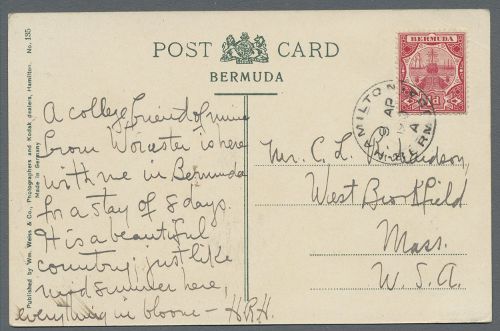 POST CARD
BERMUDA
BERMUDA
A college friend of mine
from Worcester is here
with me in Bermuda
for a stay of 8 days.
It is a beautiful
country; just like
midsummer here,
everything in bloom — H.R.H.
Mr. C. L.
West Brookfield
Mass.
U.S.A.
No. 135
Published by Wm. Weiss & Co., Photographers and Kodak dealers, Hamilton.
Made in Germany